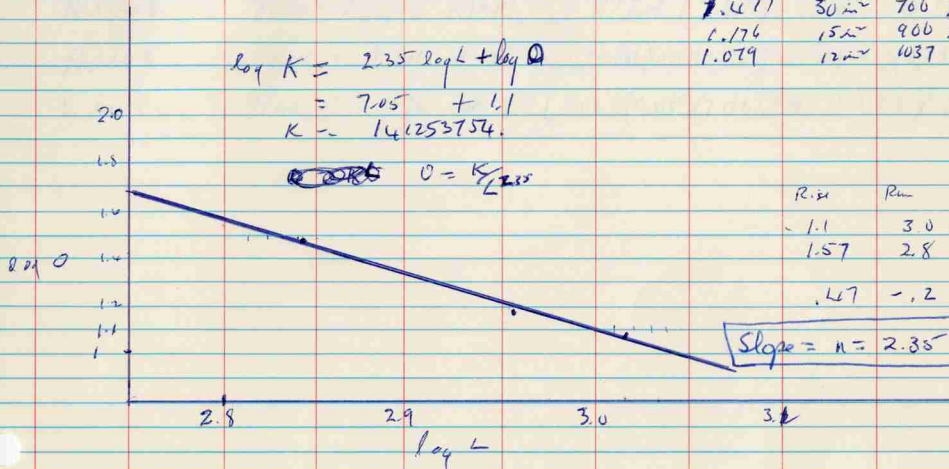 1.477 30 in² 700
1.176 15 in² 900
1.079 12 in² 1037
log K = 2.35 log L + log O
= 7.05 + 1.1
K = 141253754.
O = K/L^2.35
2.0
1.8
1.6
1.4
1.2
1.1
1
log O
Rise Run
1.1 3.0
1.57 2.8
.47 -.2
Slope = n = 2.35
2.8 2.9 3.0 3.1
log L